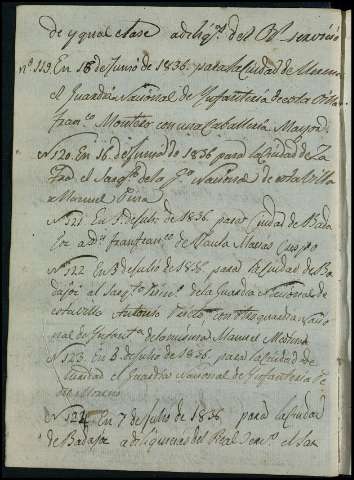 de ygual clase a dilig.s del R.l servicio
nº. 119. En 16 de Junio de 1836. para la Ciudad de
el Guardia Nacional de Ynfanteria de esta Villa
Fran.co Montero con una Caballeria Mayor
Nº 120. En 16 de Junio de 1836 para la Ciudad de Za
fra el Sarg.to de la G.a Nacional de esta Villa
Manuel Piva
Nº 121 En 1 de Julio de 1836. para Ciudad de Bada
joz a D.n Fran.co de Paula Macias Crespo
Nº 122 En 3 de Julio de 1836. para la Ciudad de Ba
dajoz al Sarg.to Prim.o de la Guardia Nacional de
esta Villa Antonio con otro guardia Nacio
nal de Ynfant.a de la misma Manuel Medina
Nº 123. En 6 de Julio de 1836. para la Ciudad de
el Guardia Nacional de Ynfanteria Pe
dro Moreno
Nº 124 En 7 de Julio de 1836 para la Ciudad
de Badajoz a diligencias del Real Serv.o el Sar